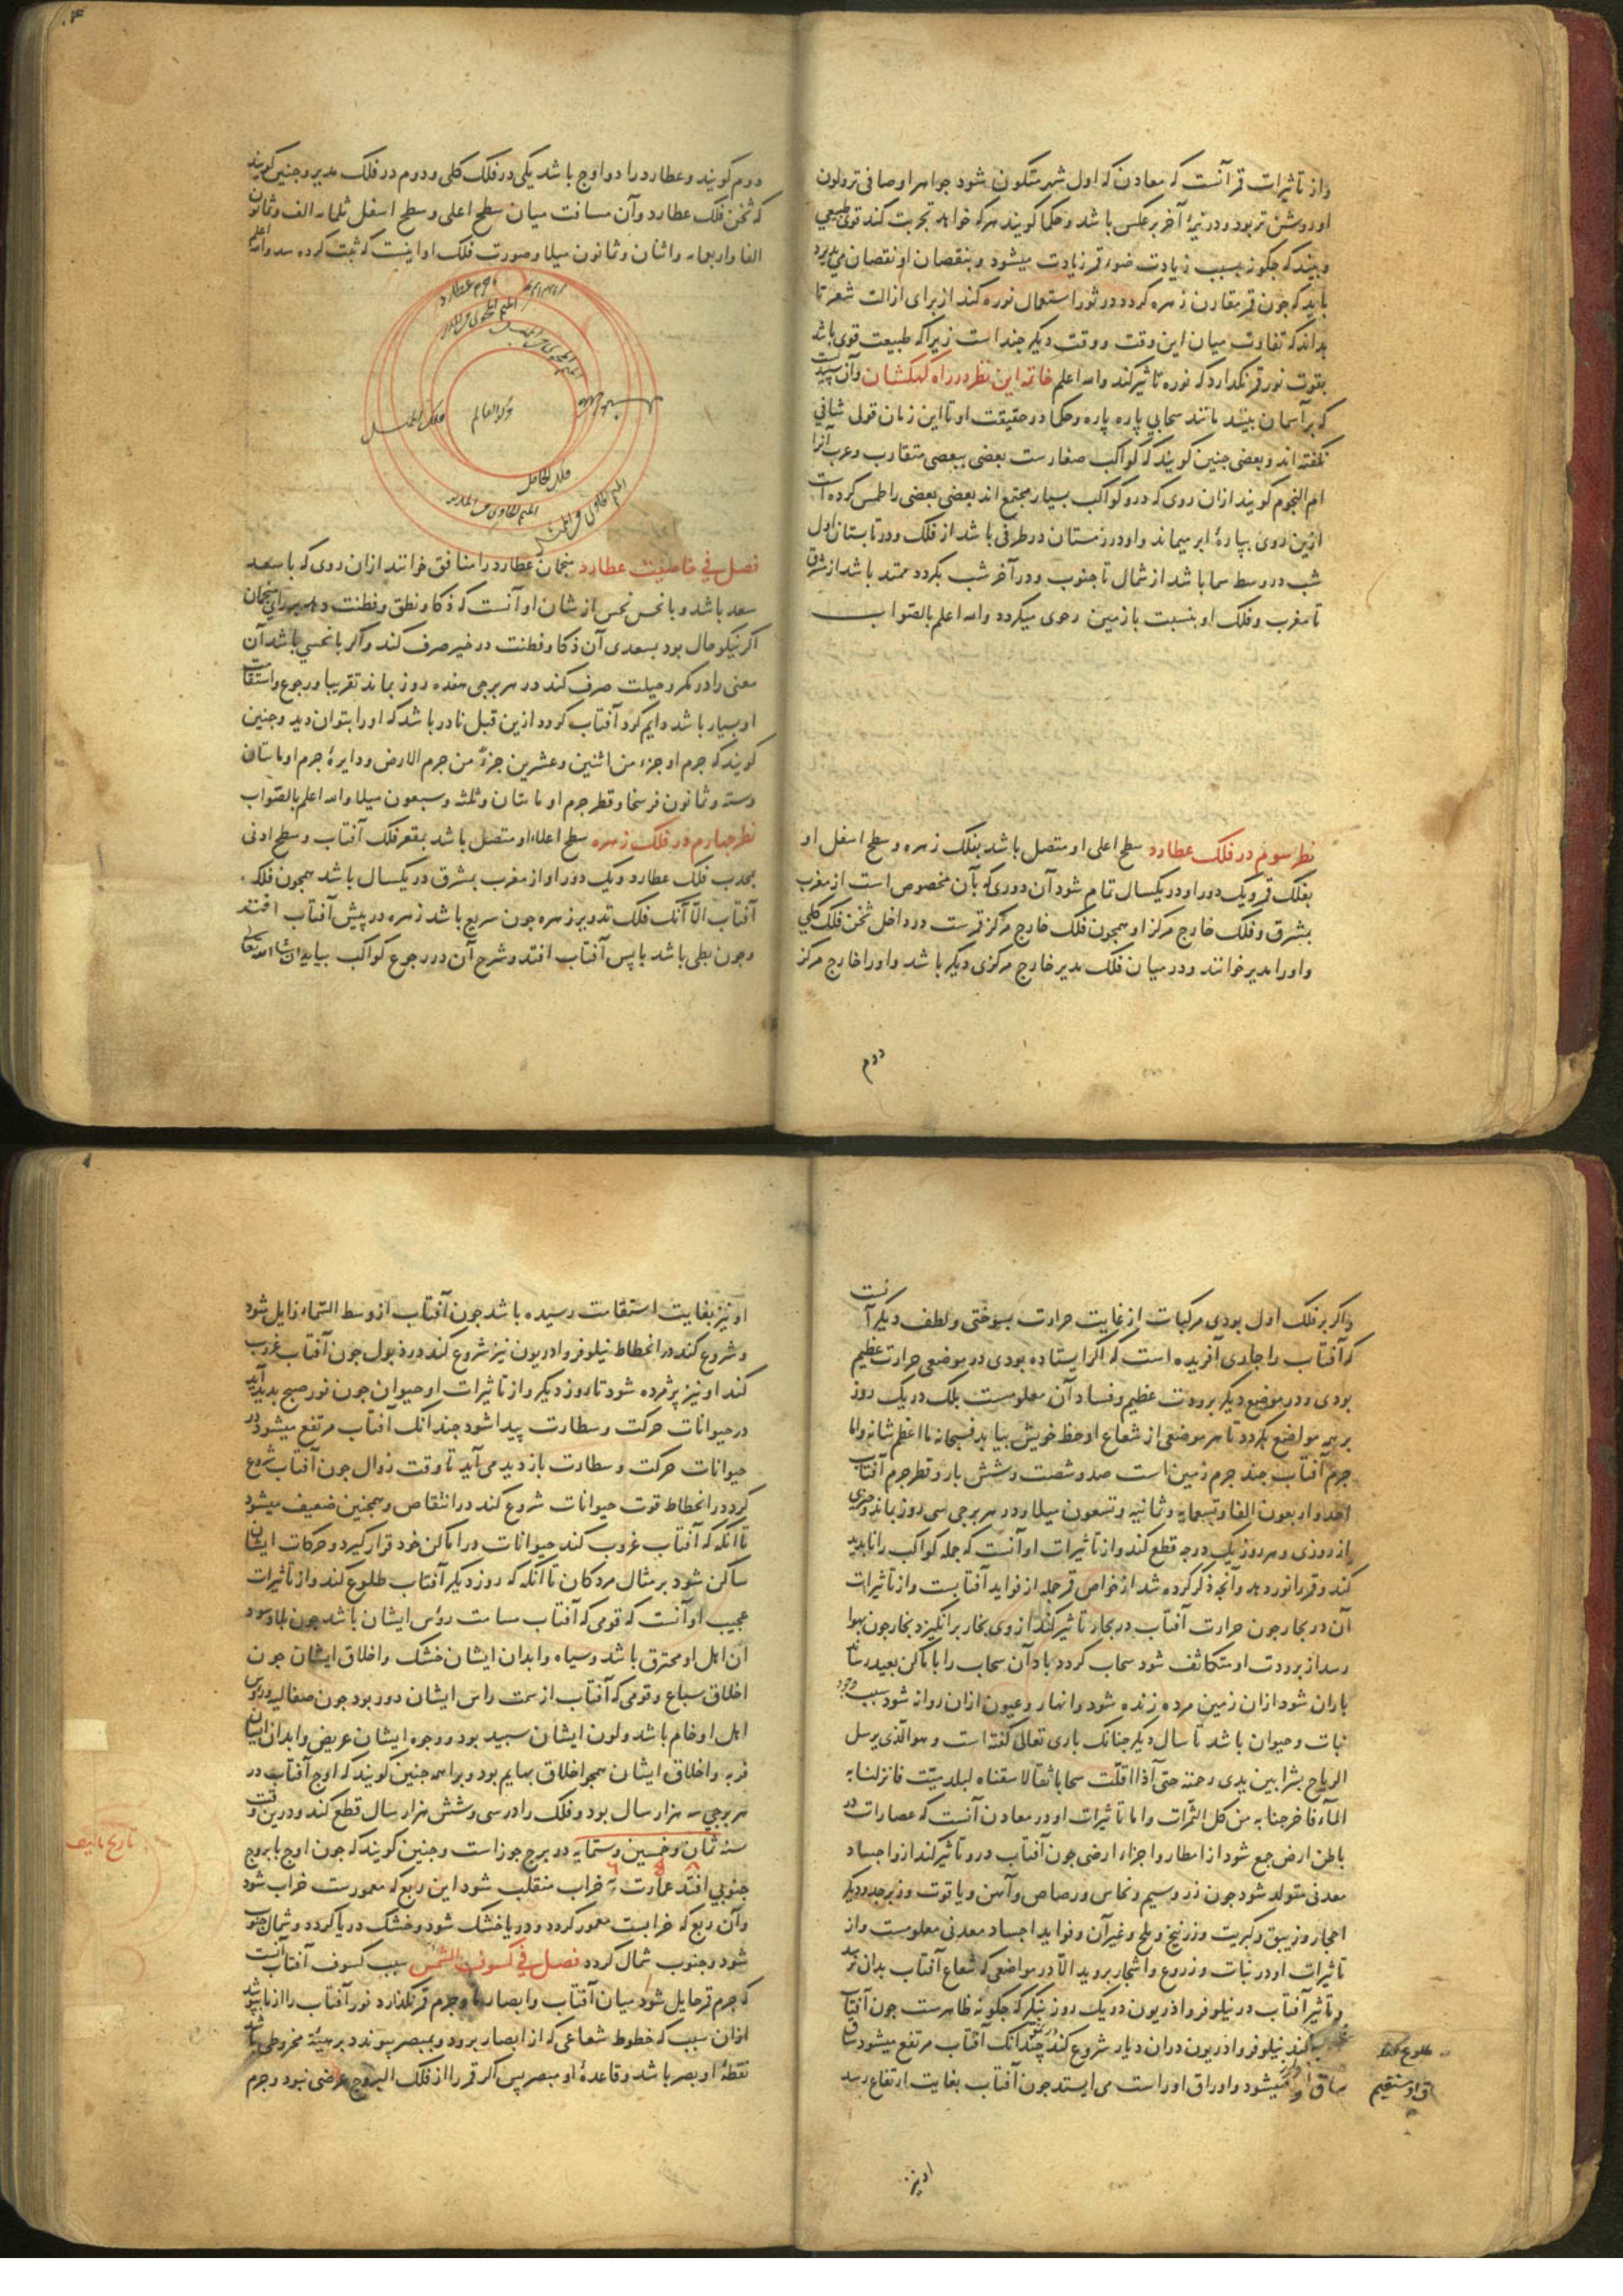 واز تاثیرات قمر آنست که معادن که اول شهر متکون شود جواهر او صافی تر و لون
او روشن تر بود و در نیمهٔ آخر برعکس باشد و حکما کویند هرکه خواهد تجربت کند قوی طبیعی
و بیند که جکونه بسبب زیادت ضوء قمر زیادت میشود و بنقصان او نقصان می پذیرد
باید که جون قمر مقارن زهره کردد در ثور استعمال نوره کند از برای ازالت شعر تا
بداند که تفاوت میان این وقت و وقت دیکر جند است زیرا که طبیعت قوی باشد
بقوت نور قمر نکدارد که نوره تاثیر کند والله اعلم خاتمه این نظر در راه کهکشان وآن سپیدیست
که بر آسمان بینند مانند سحابی پاره پاره و حکما در حقیقت او تا این زمان قول شافی
نکفته اند و بعضی جنین کویند که کواکب صغارست بعضی ببعضی متقارب و عرب آنرا
ام النجوم کویند ازان روی که درو کواکب بسیار مجتمع اند بعضی بعضی را طمس کرده است
ازین روی بپارهٔ ابر میماند و او در زمستان در طرفی باشد از فلک و در تابستان اول
شب در وسط سما باشد از شمال تا جنوب و در آخر شب بکردد ممتد باشد از مشرق
تا مغرب و فلک او بنسبت با زمین رحوی میکردد والله اعلم بالصواب
نظر سوم در فلک عطارد سطح اعلی او متصل باشد بفلک زهره و سطح اسفل او
بفلک قمر و یک دور او در یکسال تمام شود آن دوری که بآن مخصوص است از مغرب
بمشرق و فلک خارج مرکز او همجون فلک خارج مرکز قمرست در داخل ثخن فلک کلی
و او را مدیر خوانند و در میان فلک مدیر خارج مرکزی دیکر باشد و او را خارج مرکز
دوم
دوم کویند و عطارد را دو اوج باشد یکی در فلک کلی و دوم در فلک مدیر و جنین کویند
که ثخن فلک عطارد وآن مسافت میان سطح اعلی و سطح اسفل ثلمایه الف و ثمانون
الفا و اربعمایه و اثنان و ثمانون میلا و صورت فلک او اینست که ثبت کرده شد والله اعلم
جرم عطارد
مرکز العالم
فلک الممثل
فلک الحامل
المتمم الحاوی من المدیر
المتمم الحاوی من الممثل
فصل فی خاصیت عطارد منجمان عطارد را منافق خوانند ازان روی که با سعد
سعد باشد و با نحس نحس از شان او آنست که ذکا و نطق و فطنت دهد برای منجمان
اکر نیکو حال بود بسعدی آن ذکا و فطنت در خیر صرف کند و اکر با نحسی باشد آن
معنی را در مکر و حیلت صرف کند در هر برجی هفده روز بماند تقریبا و رجوع و استقامت
او بسیار باشد دایم کرد آفتاب کردد ازین قبل نادر باشد که او را بتوان دید و جنین
کویند که جرم او جزء من اثنین و عشرین جزءً من جرم الارض و دایرهٔ جرم او ماتان
و ستة و ثمانون فرسخا و قطر جرم او ماتان و ثلثه و سبعون میلا والله اعلم بالصواب
نظر جهارم در فلک زهره سطح اعلاء او متصل باشد بمقعر فلک آفتاب و سطح ادنی
بمحدب فلک عطارد و یک دور او از مغرب بمشرق در یکسال باشد همجون فلک
آفتاب الّا آنک فلک تدویر زهره جون سریع باشد زهره در پیش آفتاب افتد
وجون بطی باشد با پس آفتاب افتد و شرح آن در رجوع کواکب بیاید ان شاء الله تعالی
واکر بر فلک اول بودی مرکبات از غایت حرارت بسوختی و لطف دیکر آنست
که آفتاب را جاری آفریده است که اکر ایستاده بودی در موضعی حرارت عظیم
بودی و در موضع دیکر برودت عظیم و فساد آن معلومست بلک در یک روز
بر همه مواضع بکردد تا هر موضعی از شعاع او حظ خویش بیابد فسبحانه ما اعظم شانه و اما
جرم آفتاب جند جرم زمین است صد و شصت و شش بار و قطر جرم آفتاب
احد و اربعون الفا و تسعمایه و ثمانیه و تسعون میلا و در هر برجی سی روز بماند و جزوی
از روزی و هر روز یک درجه قطع کند و از تاثیرات او آنست که جمله کواکب را ناپدید
کند و قمر را نور دهد وآنجه ذکر کرده شد از خواص قمر جمله از فواید آفتابست و از تاثیرات
آن در بحار جون حرارت آفتاب در بحار تاثیر کند از وی بخار برانکیزد بخار جون بهوا
رسد از برودت او متکاثف شود سحاب کردد باد آن سحاب را با ماکن بعید رساند
باران شود ازان زمین مرده زنده شود و انهار و عیون ازان روانه شود سبب وجود
نبات و حیوان باشد تا سال دیکر جنانک باری تعالی کفته است و هو الذی یرسل
الریاح بشرا بین یدی رحمته حتی اذا اقلّت سحابا ثقالا سقناه لبلد میّت فانزلنا به
المآء فاخرجنا به من کل الثمرات و اما تاثیرات او در معادن آنست که عصارات در
باطن ارض جمع شود از امطار و اجزاء ارضی جون آفتاب درو تاثیر کند ازو اجساد
معدنی متولد شود جون زر و سیم و نحاس و رصاص و آهن و یاقوت و زبرجد و دیکر
احجار و زیبق و کبریت و زرنیخ و ملح و غیر آن و فواید اجساد معدنی معلومست و از
تاثیرات او در نبات و زروع و اشجار بروید الّا در مواضعی که شعاع آفتاب بدان رسد
و تاثیر آفتاب در نیلوفر و اذریون در یک روز بنکر که جکونه ظاهرست جون آفتاب
کند نیلوفر و اذریون دران دیار شروع کند جندانک آفتاب مرتفع میشود ساق
ساق او میشود و اوراق او راست می ایستد جون آفتاب بغایت ارتفاع رسد
طلوع کند
ساق او مستقیم
او نیز
او نیز بغایت استقامت رسیده باشد جون آفتاب از وسط السماء زایل شود
و شروع کند در انحطاط نیلوفر و اذریون نیز شروع کند در ذبول جون آفتاب غروب
کند او نیز پژمرده شود تا روز دیکر و از تاثیرات او حیوان جون نور صبح پدید آید
در حیوانات حرکت و سطارت پیدا شود جندانک آفتاب مرتفع میشود در
حیوانات حرکت و سطارت باز دید می آید تا وقت زوال جون آفتاب شروع
کرد در انحطاط قوت حیوانات شروع کند در انتقاص و همجنین ضعیف میشود
تا آنکه که آفتاب غروب کند حیوانات در اماکن خود قرار کیرد و حرکات ایشان
ساکن شود بر مثال مردکان تا آنکه که روز دیکر آفتاب طلوع کند و از تاثیرات
عجیب او آنست که قومی که آفتاب مسامت رؤس ایشان باشد جون بلاد سود
ان اهل او محترق باشد و سیاه و ابدان ایشان خشک و اخلاق ایشان جون
اخلاق سباع و قومی که آفتاب از سمت راس ایشان دور بود جون صقالبه و روس
اهل او خام باشد و لون ایشان سپید بود و وجوه ایشان عریض و ابدان ایشان
فربه و اخلاق ایشان همجو اخلاق بهایم بود و براهمه جنین کویند که اوج آفتاب در
هر برجی سه هزار سال بود و فلک را در سی و شش هزار سال قطع کند و درین وقت
سنه ثمان و خمسین و ستمایه در برج جوزاست و جنین کویند که جون اوج با بروج
۸ ۵ ۶
جنوبی افتد عمارت به خراب منقلب شود این ربع که معمورست خراب شود
وآن ربع که خرابست معمور کردد و دریا خشک شود و خشک دریا کردد و شمال جنوب
شود و جنوب شمال کردد فصل فی کسوف الشمس سبب کسوف آفتاب آنست
که جرم قمر حایل شود میان آفتاب و ابصار ما و جرم قمر نکذارد نور آفتاب را از ما بپوشد
ازان سبب که خطوط شعاعی که از ابصار برود و بمبصر پیوندد بر هیئة مخروطی باشد
نقطهٔ او بصر باشد و قاعدهٔ او مبصر پس اکر قمر را از فلک البروج عرضی نبود و جرم
تاریخ تالیف